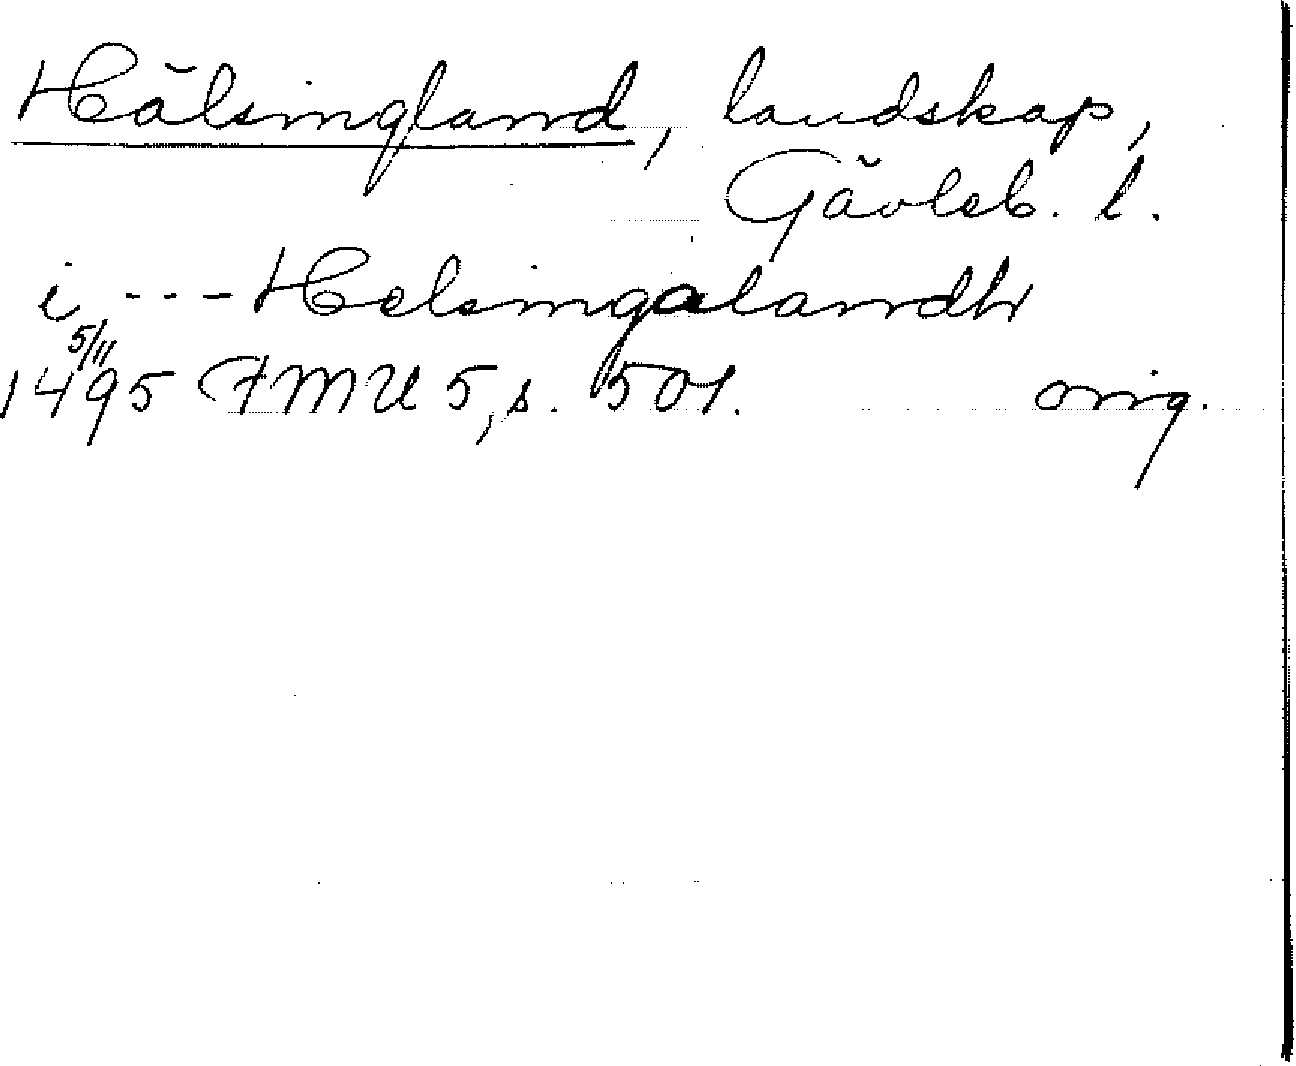 Hälsingland, landskap,
Gävleb. l.
i --- Helsingalandh
5/11
1495 FMU 5, s. 501. orig.